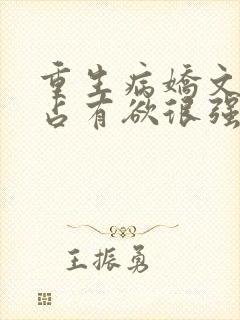 重生病嬌文
占有欲很强
王振勇